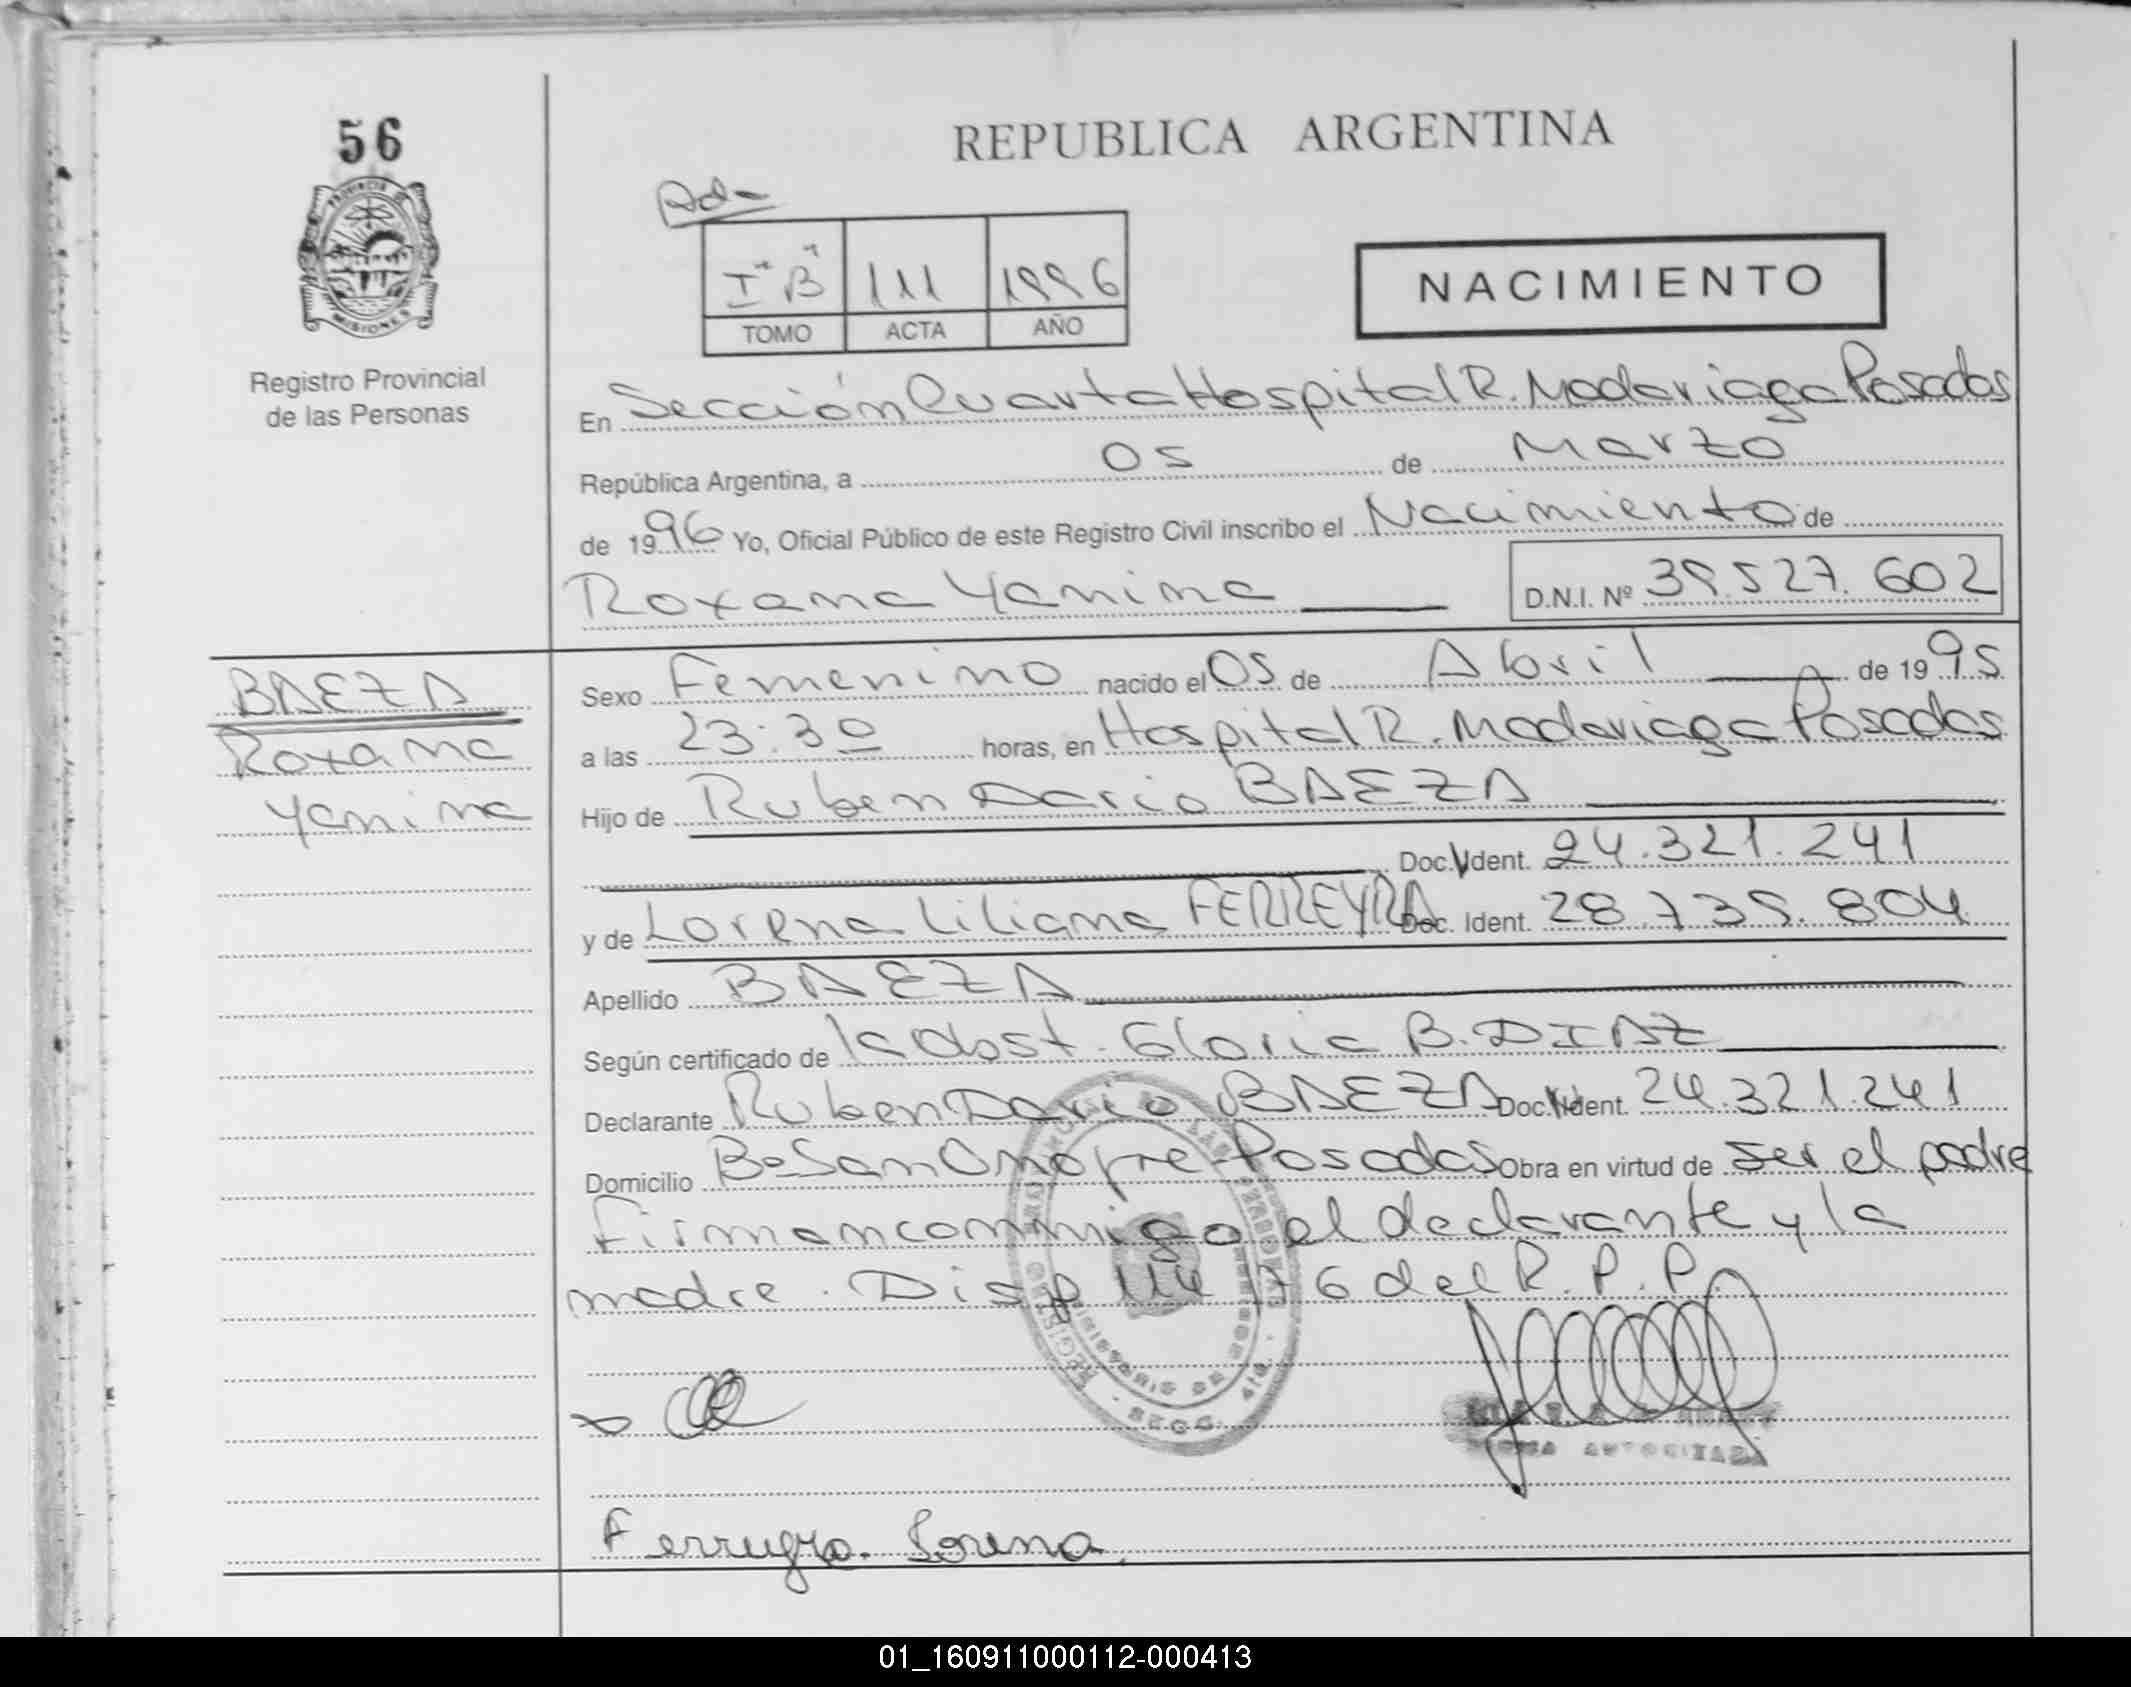 56
PROVINCIA DE
MISIONES
Registro Provincial
de las Personas
REPUBLICA ARGENTINA
Ad-
I "B" 111 1996
TOMO ACTA AÑO
NACIMIENTO
En Sección Cuarta Hospital R. Madariaga Posadas
República Argentina, a 05 de Marzo
de 1996 Yo, Oficial Público de este Registro Civil inscribo el Nacimiento de
Roxana Yanina
D.N.I. Nº 39.527.602
BAEZA
Roxana
Yanina
Sexo Femenino nacido el 05 de Abril de 1995
a las 23:30 horas, en Hospital R. Madariaga Posadas
Hijo de Ruben Dario BAEZA
Doc. Ident. 24.321.241
y de Lorena Liliana FERREYRA Doc. Ident. 28.735.804
Apellido BAEZA
Según certificado de la obst. Gloria B. DIAZ
Declarante Ruben Dario BAEZA Doc. Ident. 24.321.241
Domicilio Bº San Onofre - Posadas Obra en virtud de ser el padre
Firman conmigo el declarante y la
madre. Disp 114/76 del R.P.P.
FIRMA AUTORIZADA
Ferreyra Lorena
01_160911000112-000413